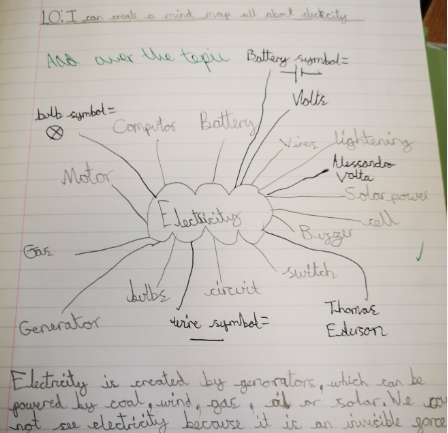 LO: I can create a mind map all about electricity
Add over the topic
Battery symbol=
Volts
bulb symbol=
Computor
Battery
Wires
lightening
Alessandro
Volta
Motor
Solar power
Electricity
cell
Buzzer
Gas
switch
bulbs
circuit
Generator
wire symbol=
Thomas
Ederson
Electricity is created by generators, which can be
powered by coal, wind, gas, oil or solar. We
not see electricity because it is an invisible